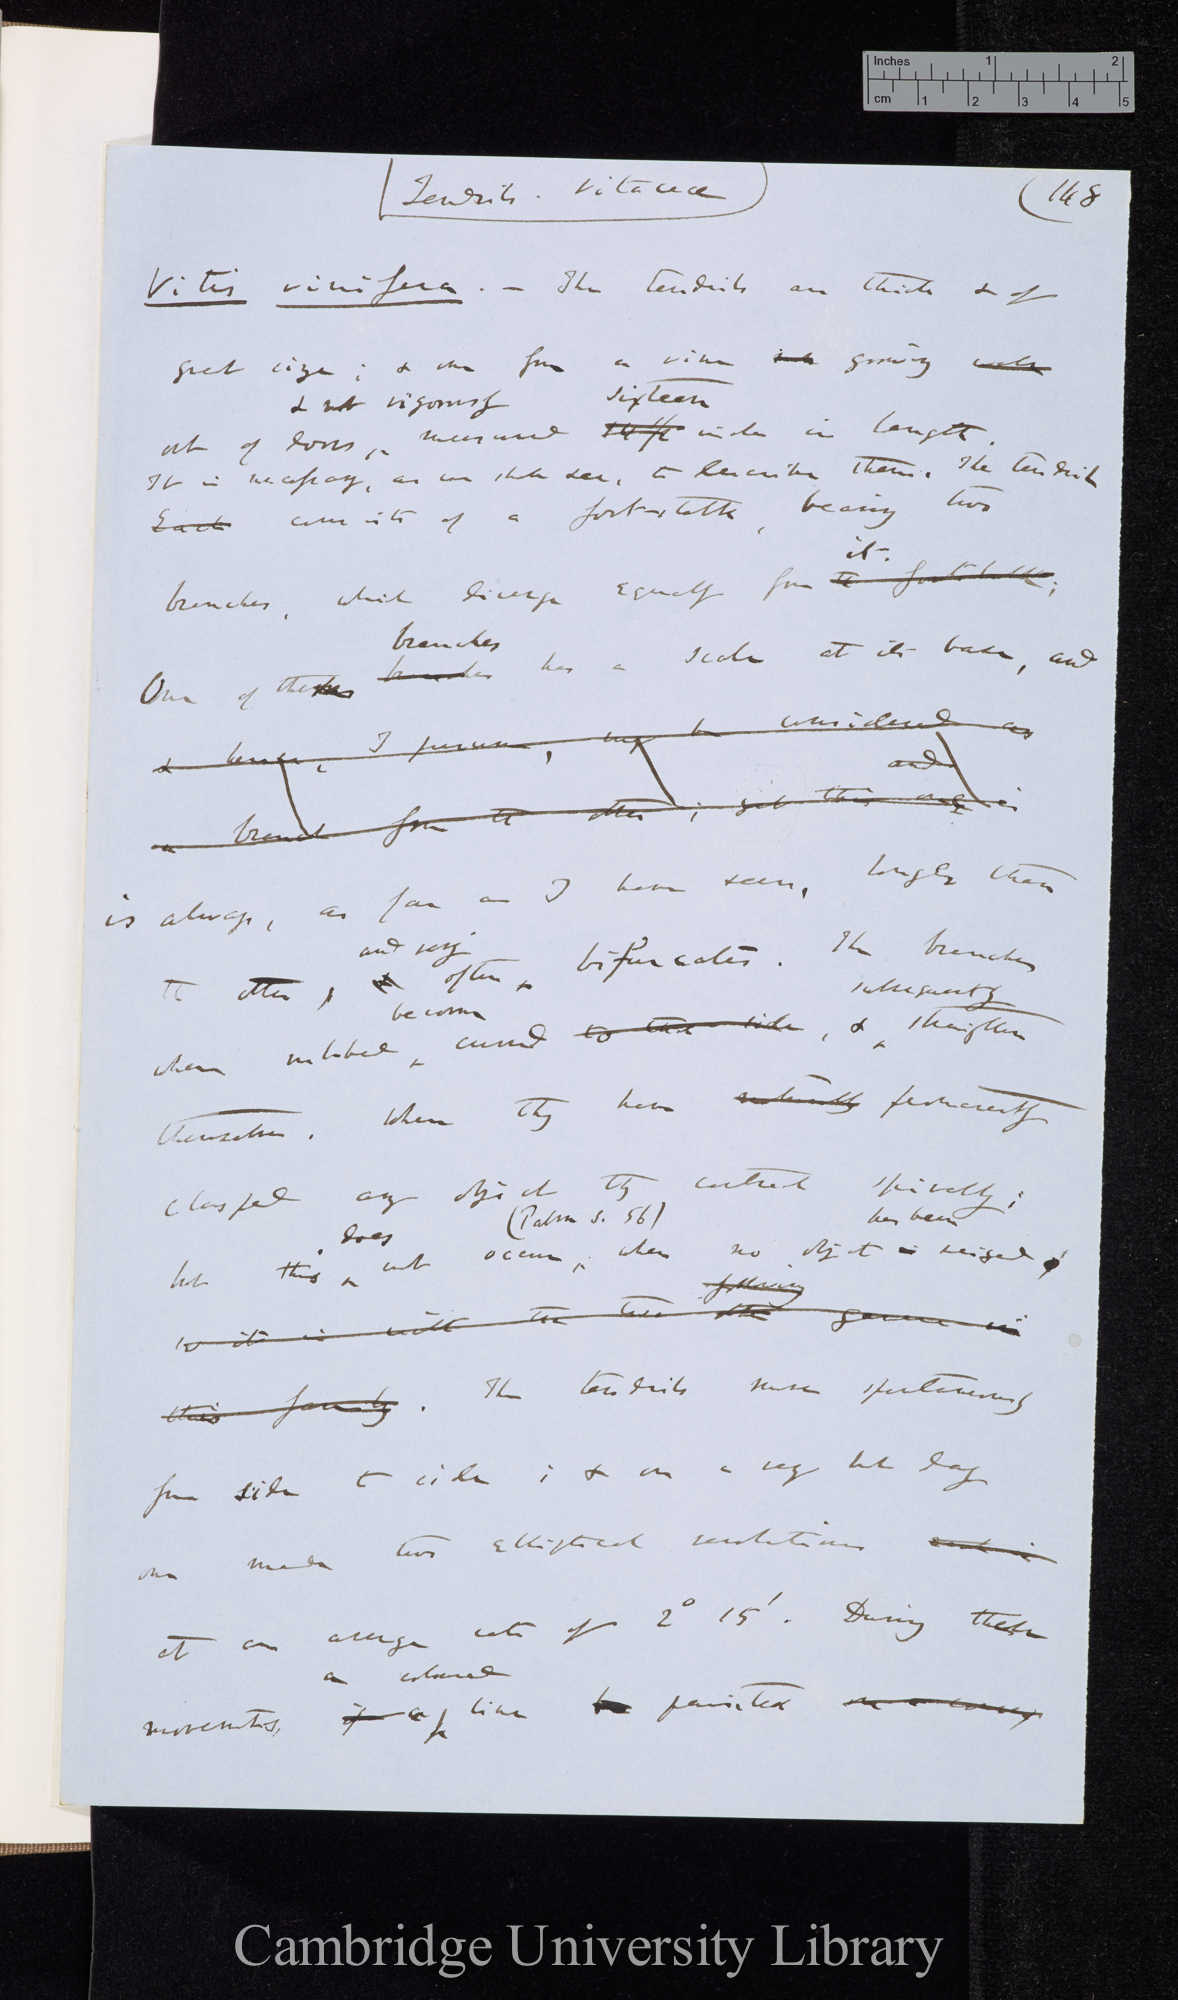 Inches 1 2
cm 1 2 3 4 5
Tendrils. Vitaceæ
(148
Vitis vinifera. — The tendrils are thick & of
great size; & one from a vine growing
& not vigorously sixteen
out of doors, measured inches in length.
It is necessary, as we shall see, to describe them. The tendril
Each consists of a foot-stalk, bearing two
it.
branches, which diverge equally from the footstalk;
branches
One of the branches has a scale at its base, and
& hence, I presume, may be considered as
and
a branch from the other; yet this one is
is always, as far as I have seen, longer than
and very
the other, & often bifurcates. The branches
become subsequently
when rubbed, curved to that side, & straighten
themselves. When they have naturally permanently
clasped any object they contract spirally;
does (Palm s. 56) has been
but this not occur, when no object is seized
following
so it is with the two other genera in
this family. The tendrils move spontaneously
from side to side; & on a very hot day
one made two elliptical revolutions
at an average rate of 2° 15'. During these
a coloured
movements, line painted
Cambridge University Library